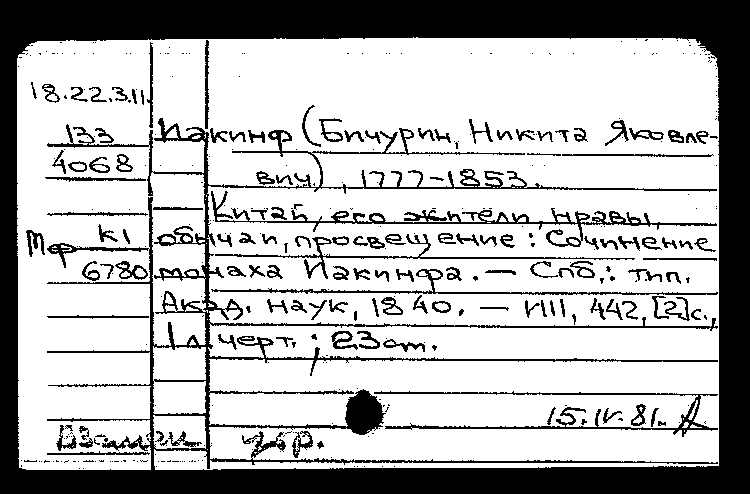 18.22.3.11.
133
4068
Мф К1
6780
Иакинф (Бичурин, Никита Яковле-
вич), 1777-1853.
Китай, его жители, нравы,
обычаи, просвещение: Сочинение
монаха Иакинфа. — Спб.: тип.
Акад. наук, 1840. — 442, [2]с.,
1 л. черт.; 23 см.
15.IV.81.
Взамен